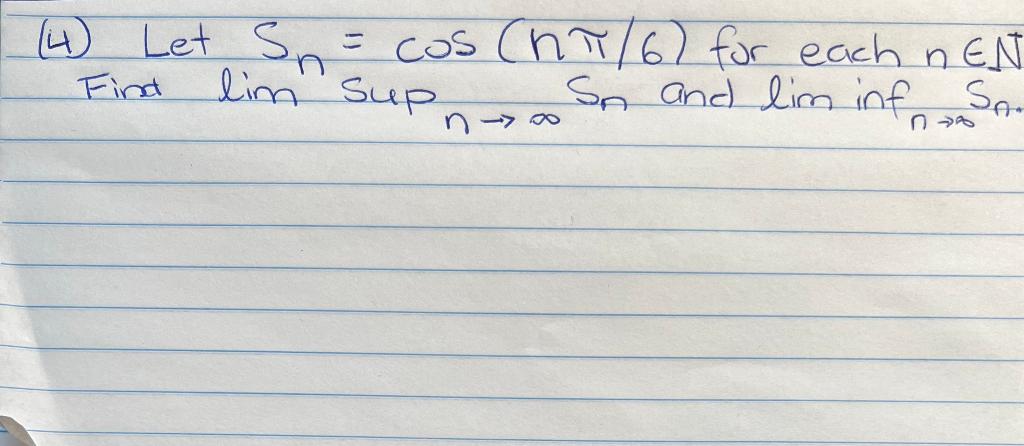 (4) Let Sn = cos (nπ/6) for each n ∈ N
Find lim sup n→∞ Sn and lim inf n→∞ Sn.